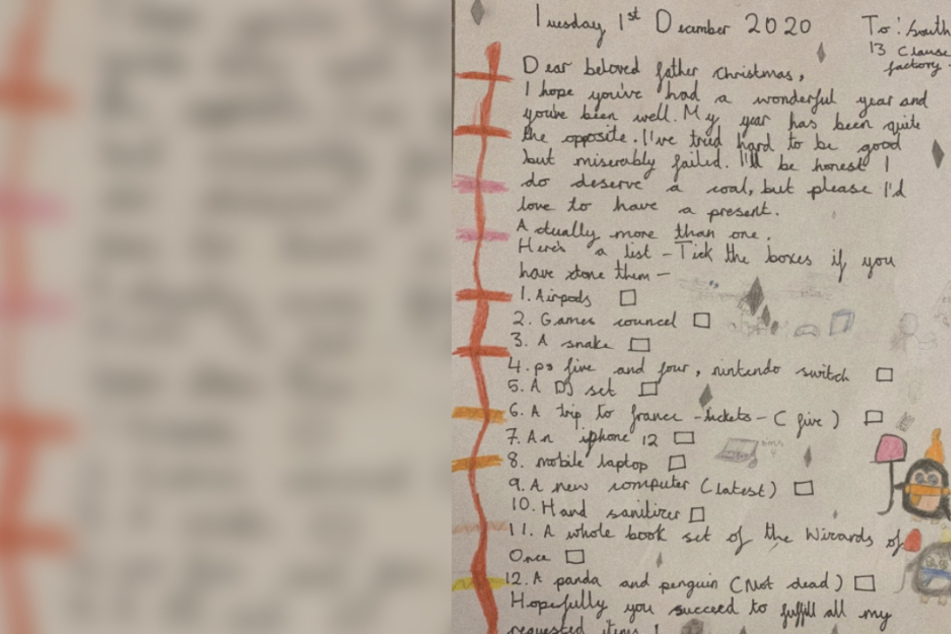 Tuesday 1st December 2020
To: South
13 Clause
factory -
Dear beloved father christmas,
I hope you've had a wonderful year and
you've been well. My year has been quite
the opposite. I've tried hard to be good
but miserably failed. I'll be honest I
do deserve a coal, but please I'd
love to have a present.
Actually more than one.
Here's a list - Tick the boxes if you
have done them -
1. Airpods
2. Games councel
3. A snake
4. ps five and four, nintendo switch
5. A DJ set
6. A trip to france - tickets - (five)
7. An iphone 12
8. mobile laptop
9. A new computer (latest)
10. Hand sanitizer
11. A whole book set of the Wizards of
Once
12. A panda and penguin (Not dead)
Hopefully you succeed to fulfill all my
requested items!